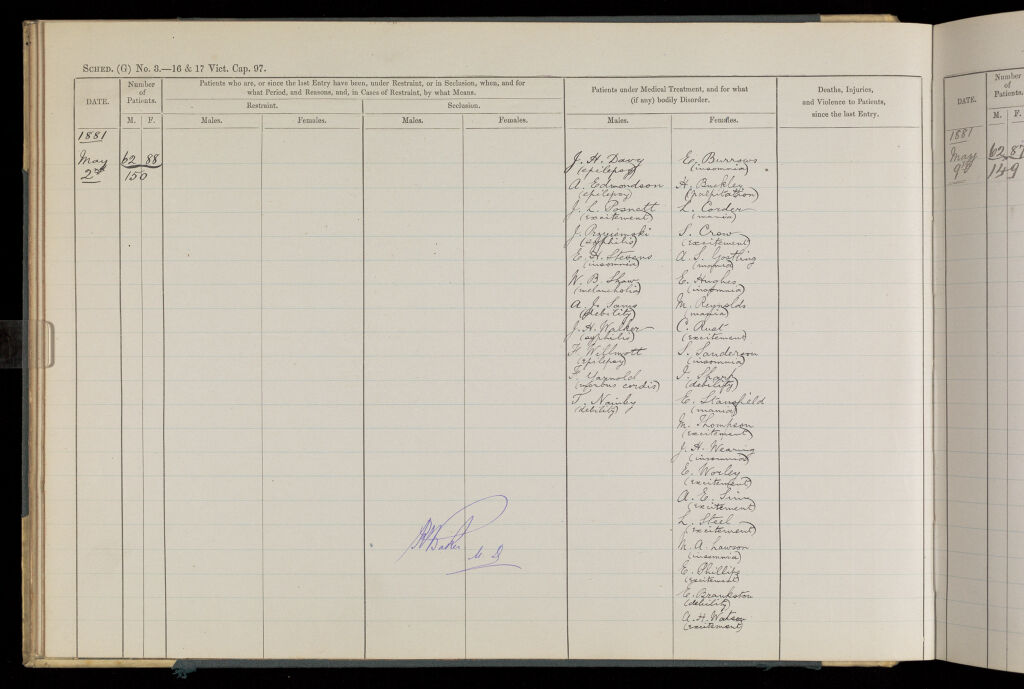 SCHED. (G) No. 3.—16 & 17 Vict. Cap. 97.
DATE.
Number
of
Patients.
M. F.
Patients who are, or since the last Entry have been, under Restraint, or in Seclusion, when, and for
what Period, and Reasons, and, in Cases of Restraint, by what Means.
Restraint.
Seclusion.
Males.
Females.
Males.
Females.
Patients under Medical Treatment, and for what
(if any) bodily Disorder.
Males.
Females.
Deaths, Injuries,
and Violence to Patients,
since the last Entry.
1881
May
2nd
62 88
150
J. H. Davy
(epilepsy)
A. Edmondson
(epilepsy)
J. L. Posnett
(excitement)
J. Przyiemski
(syphilis)
E. H. Stevens
(insomnia)
W. B. Shaw
(melancholia)
A. J. Sams
(debility)
J. H. Walker
(syphilis)
F. Willmott
(epilepsy)
F. Yarnold
(morbus cordis)
T. Nainby
(debility)
E. Burrows
(insomnia)
H. Buckley
(palpitation)
L. Corder
(mania)
S. Crow
(excitement)
A. S. Gostling
(mania)
E. Hughes
(insomnia)
M. Reynolds
(mania)
C. Rust
(excitement)
S. Sanderson
(insomnia)
I. Sharp
(debility)
E. Stansfield
(mania)
M. Thomhson
(excitement)
J. H. Wearing
(insomnia)
E. Worley
(excitement)
A. E. Sinn
(excitement)
L. Steel
(excitement)
M. A. Lawson
(insomnia)
E. Phillips
(excitement)
E. Brankston
(debility)
A. H. Watson
(excitement)
Baker
DATE.
Number
of
Patients.
M. F.
1881
May
9th
62 87
149